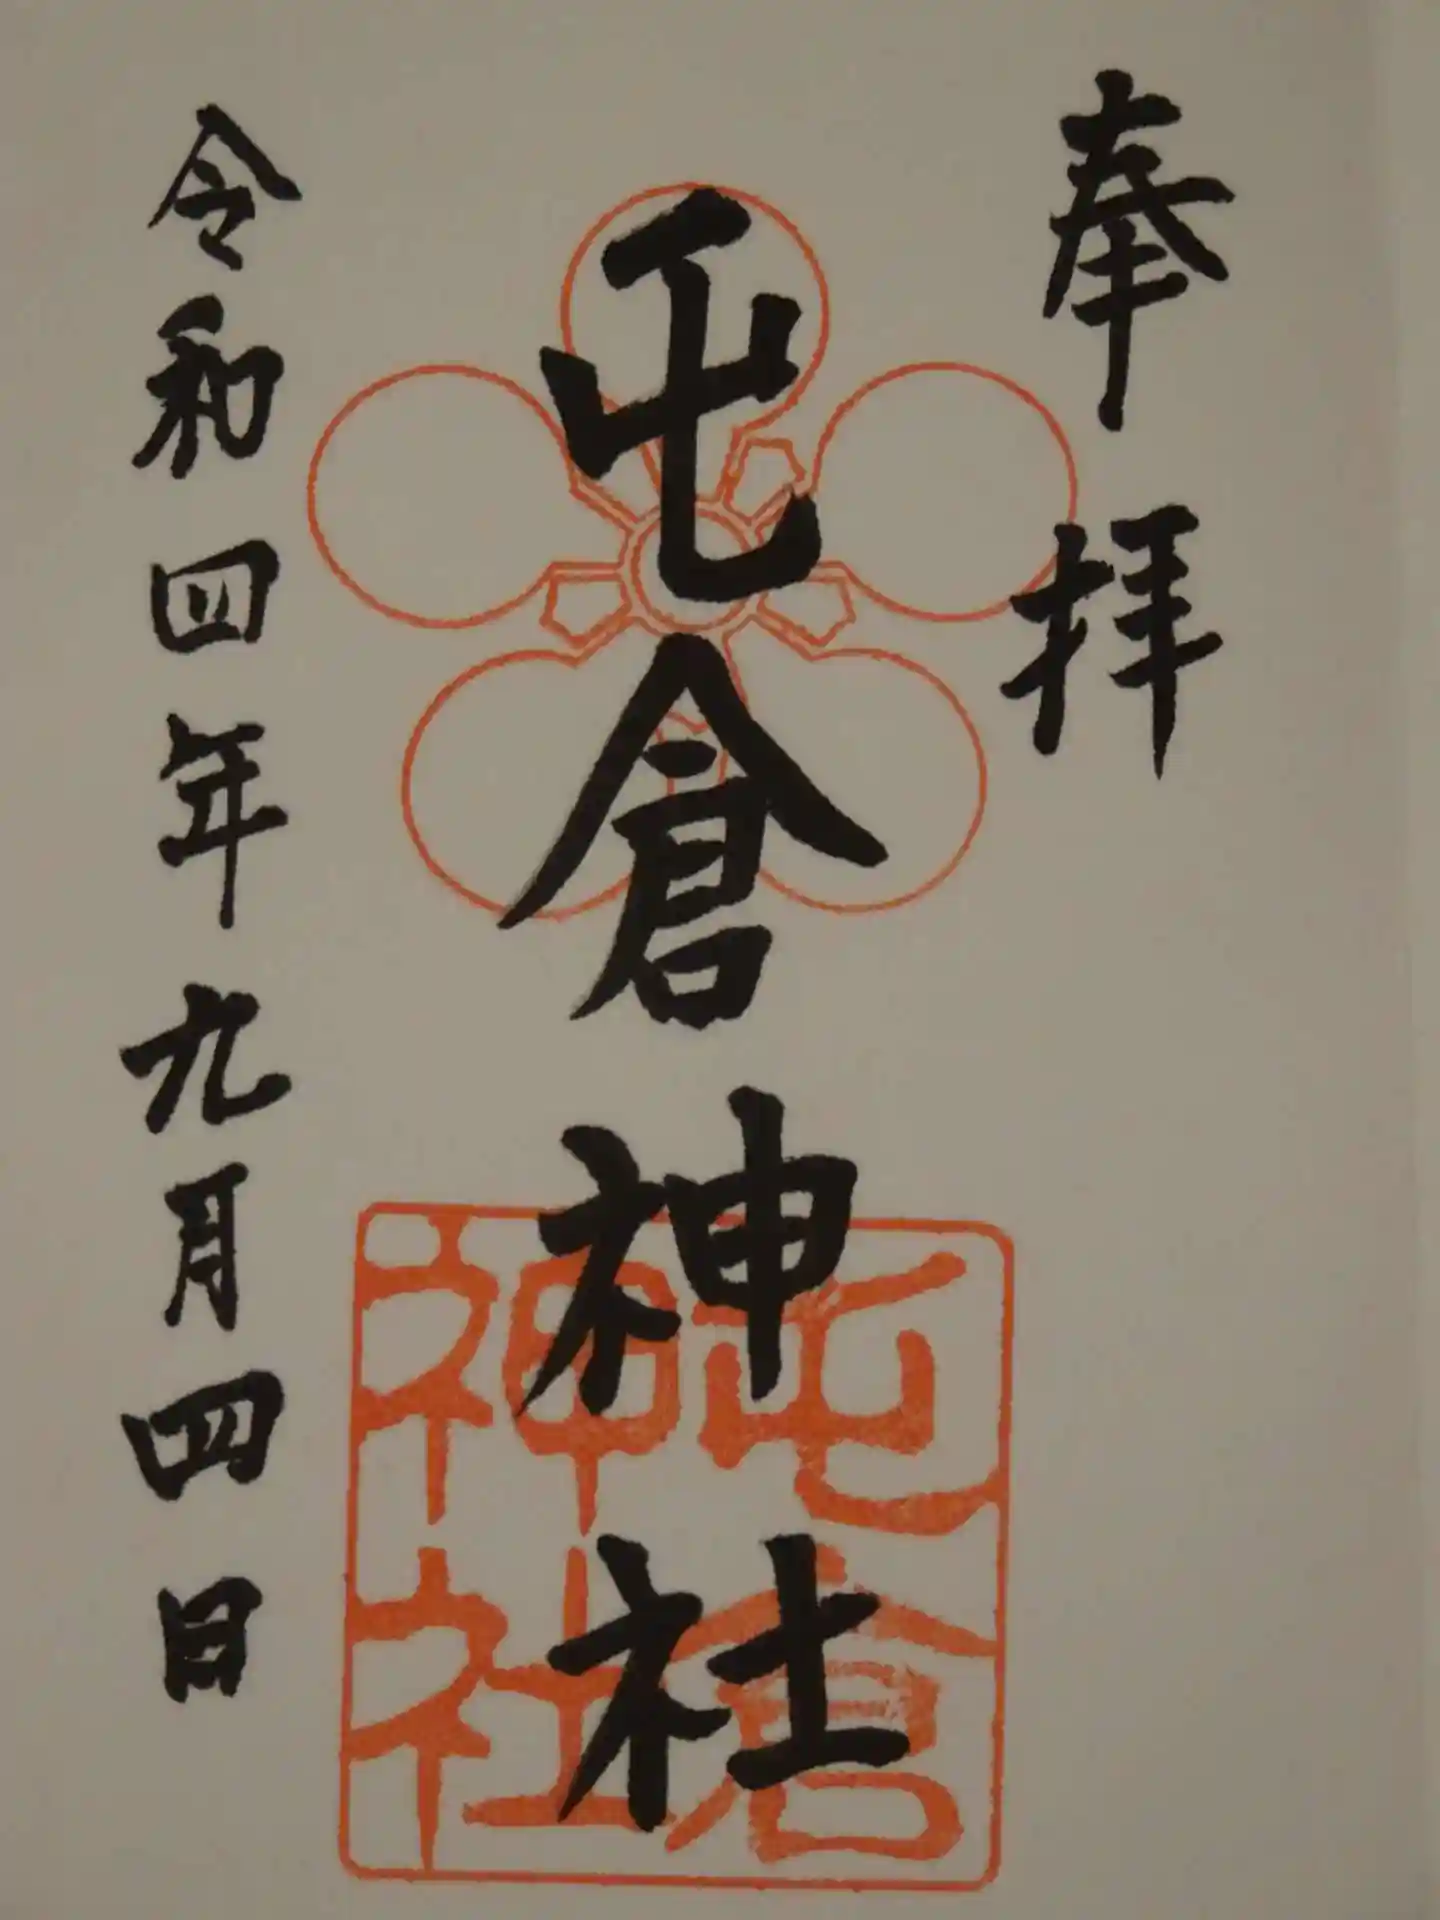 奉拝
屯倉神社
屯倉神社
令和四年九月四日